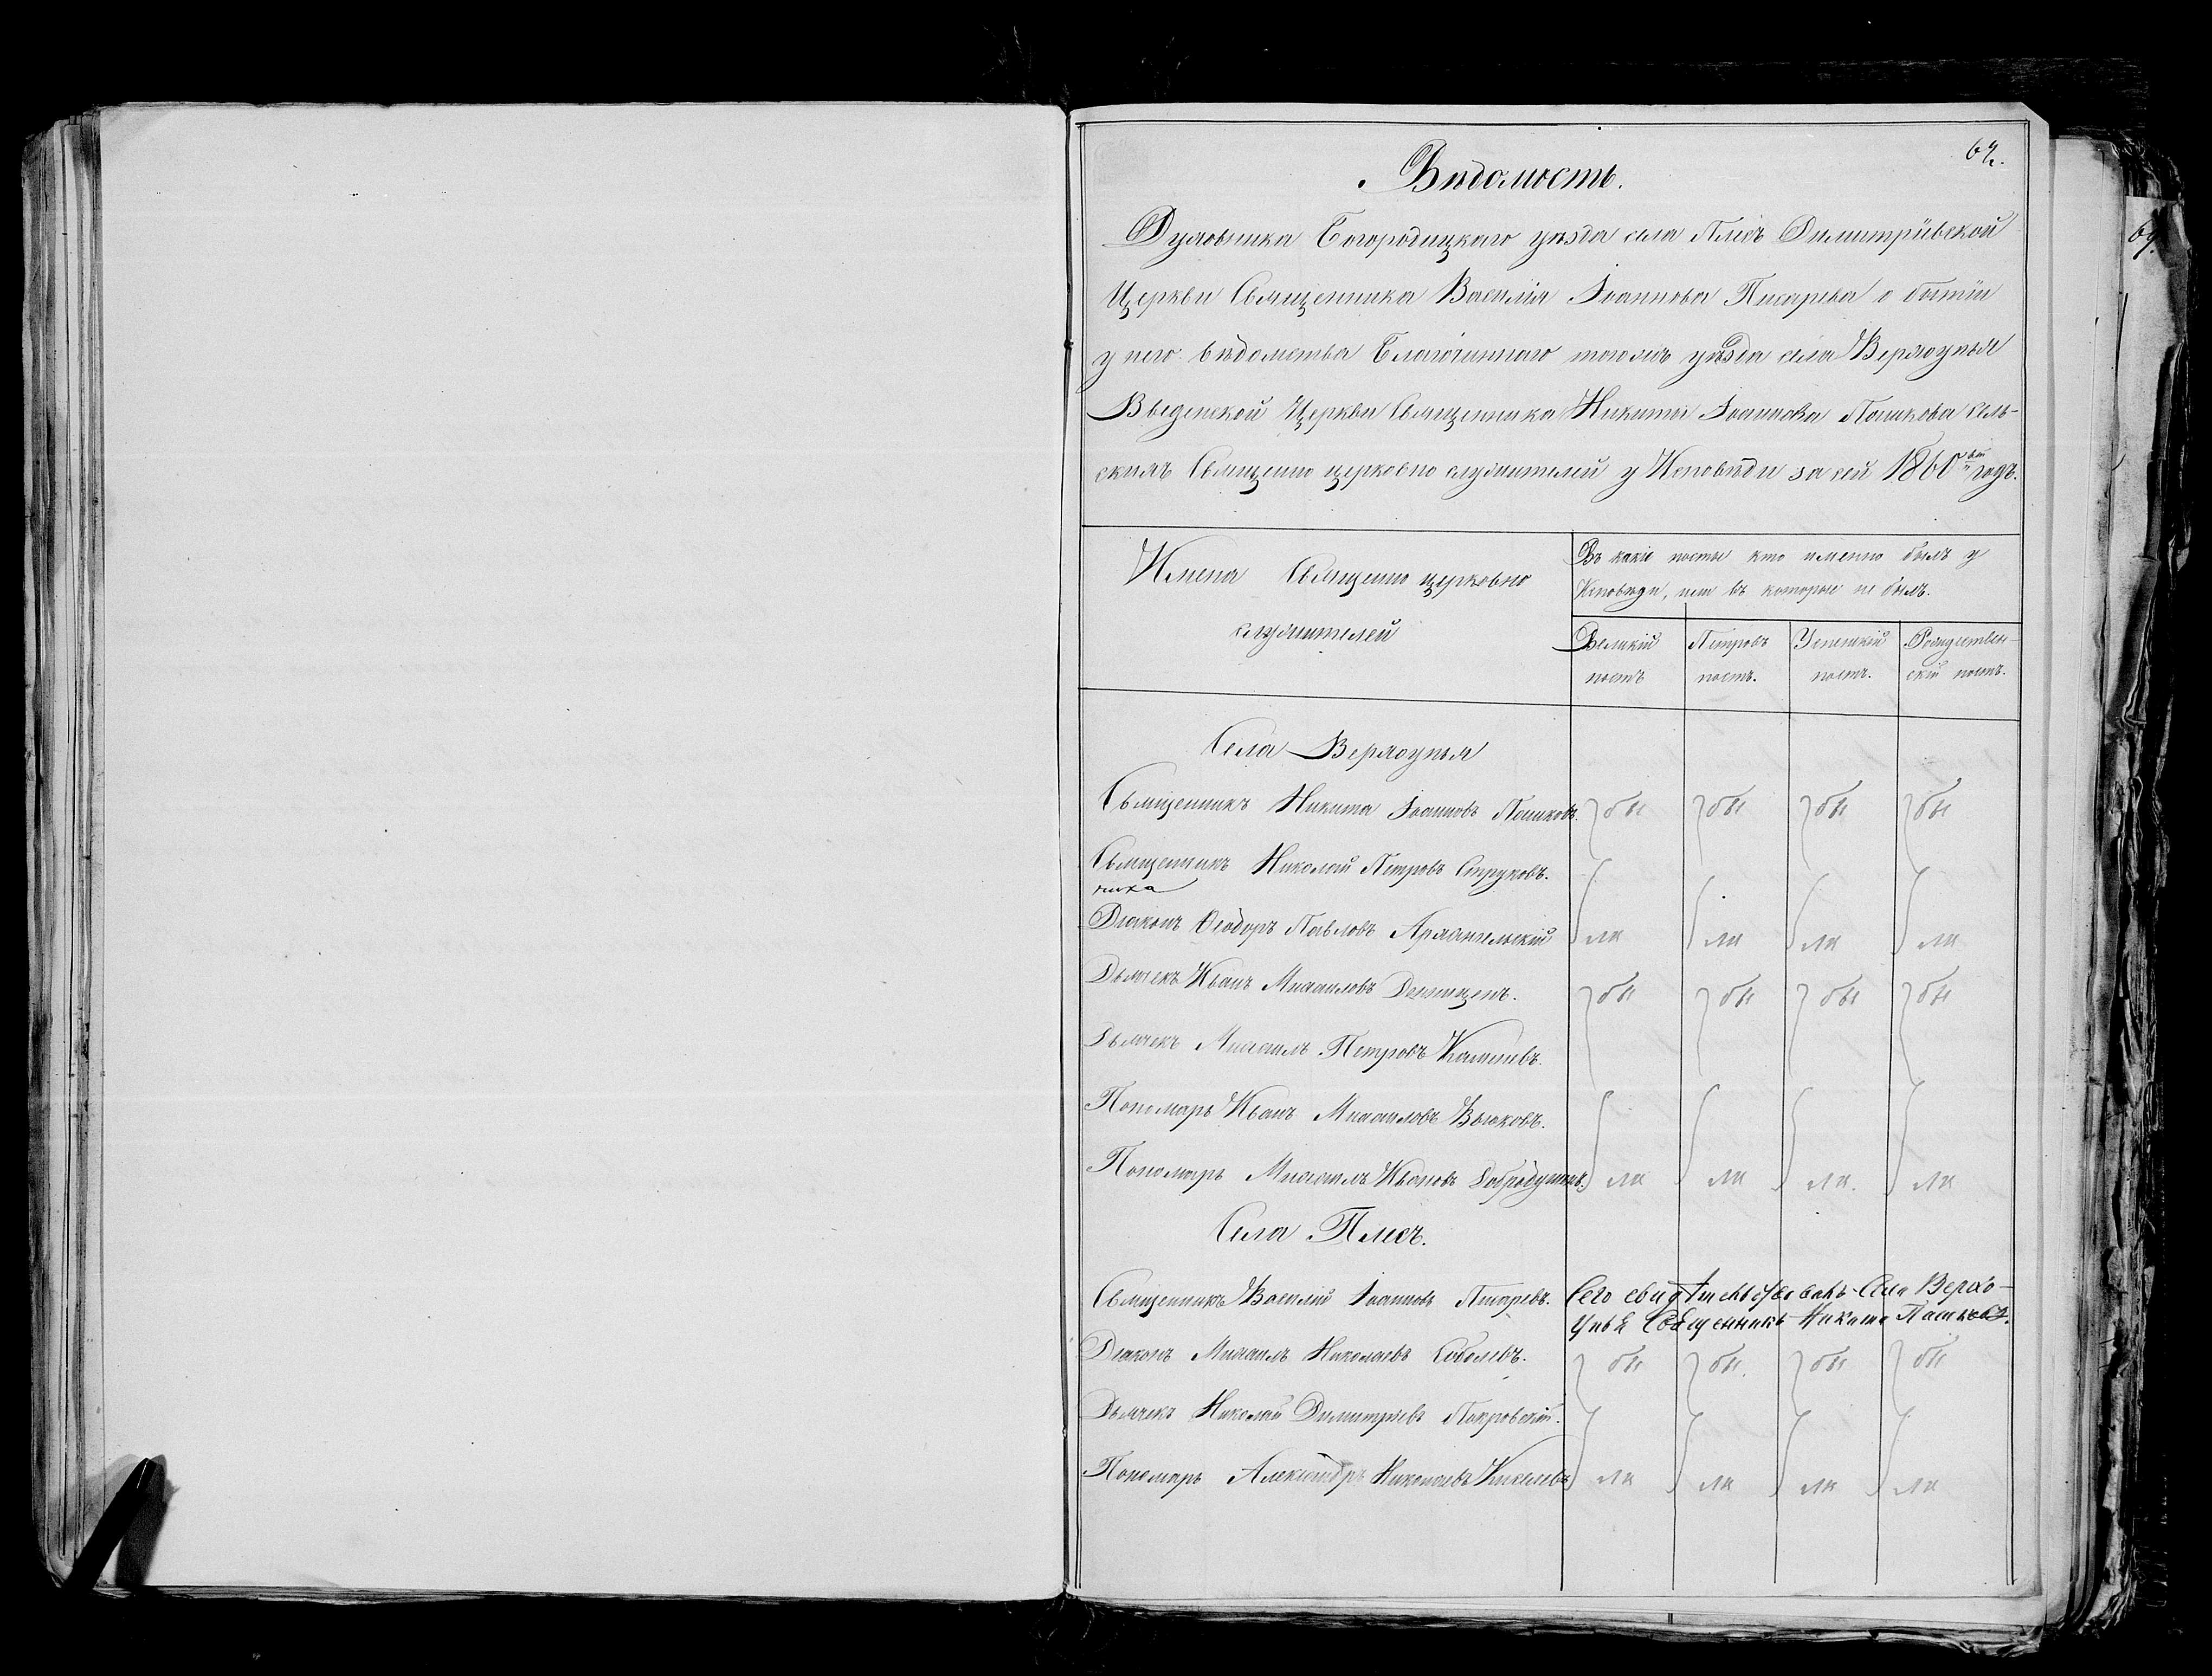 62.
Вѣдомость.
Духовника Богородицкаго уѣзда села Плесъ Димитріевской
Церкви Священника Василія Іоаннова Писарева о бытіи
у него вѣдомства Благочиннаго тогожъ уѣзда села Верхоупья
Введенской Церкви Священника Никиты Іоаннова Пашкова сель-
скихъ Священно церковно служителей у Исповѣди за сей 1860й годъ.
Имена Священно церковно
служителей
Въ какіе посты кто именно былъ у
Исповѣди, или въ которые не былъ.
Великій
постъ
Петровъ
постъ.
Успенскій
постъ.
Рождествен-
скій постъ.
Села Верхоупья
Священникъ Никита Іоанновъ Пашковъ. бы бы бы бы
Священникъ Николай Петровъ Струковъ.
Діаконъ Ѳеодоръ Павловъ Архангельскій ли ли ли ли
Дьячекъ Иванъ Михаиловъ бы бы бы бы
Дьячекъ Михаилъ Петровъ Каменевъ.
Пономарь Иванъ Михаиловъ Вьюковъ.
Пономарь Михаилъ Ивановъ ли ли ли. ли
Села Плесъ.
Священникъ Василій Іоанновъ Писаревъ. Сего свидѣтельствовалъ Села Верхо-
упья Священникъ Никита Пашковъ.
Діаконъ Михаилъ Николаевъ Соболевъ. бы бы. бы бы
Дьячекъ Николай Димитріевъ Покровскій.
Пономарь Александръ Николаевъ Киселевъ ли ли ли ли
69.